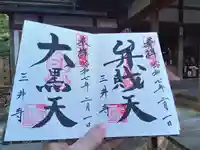 奉拝 令和七年二月一日
弁財天
三井寺
奉拝 令和七年二月一日
大黒天
三井寺